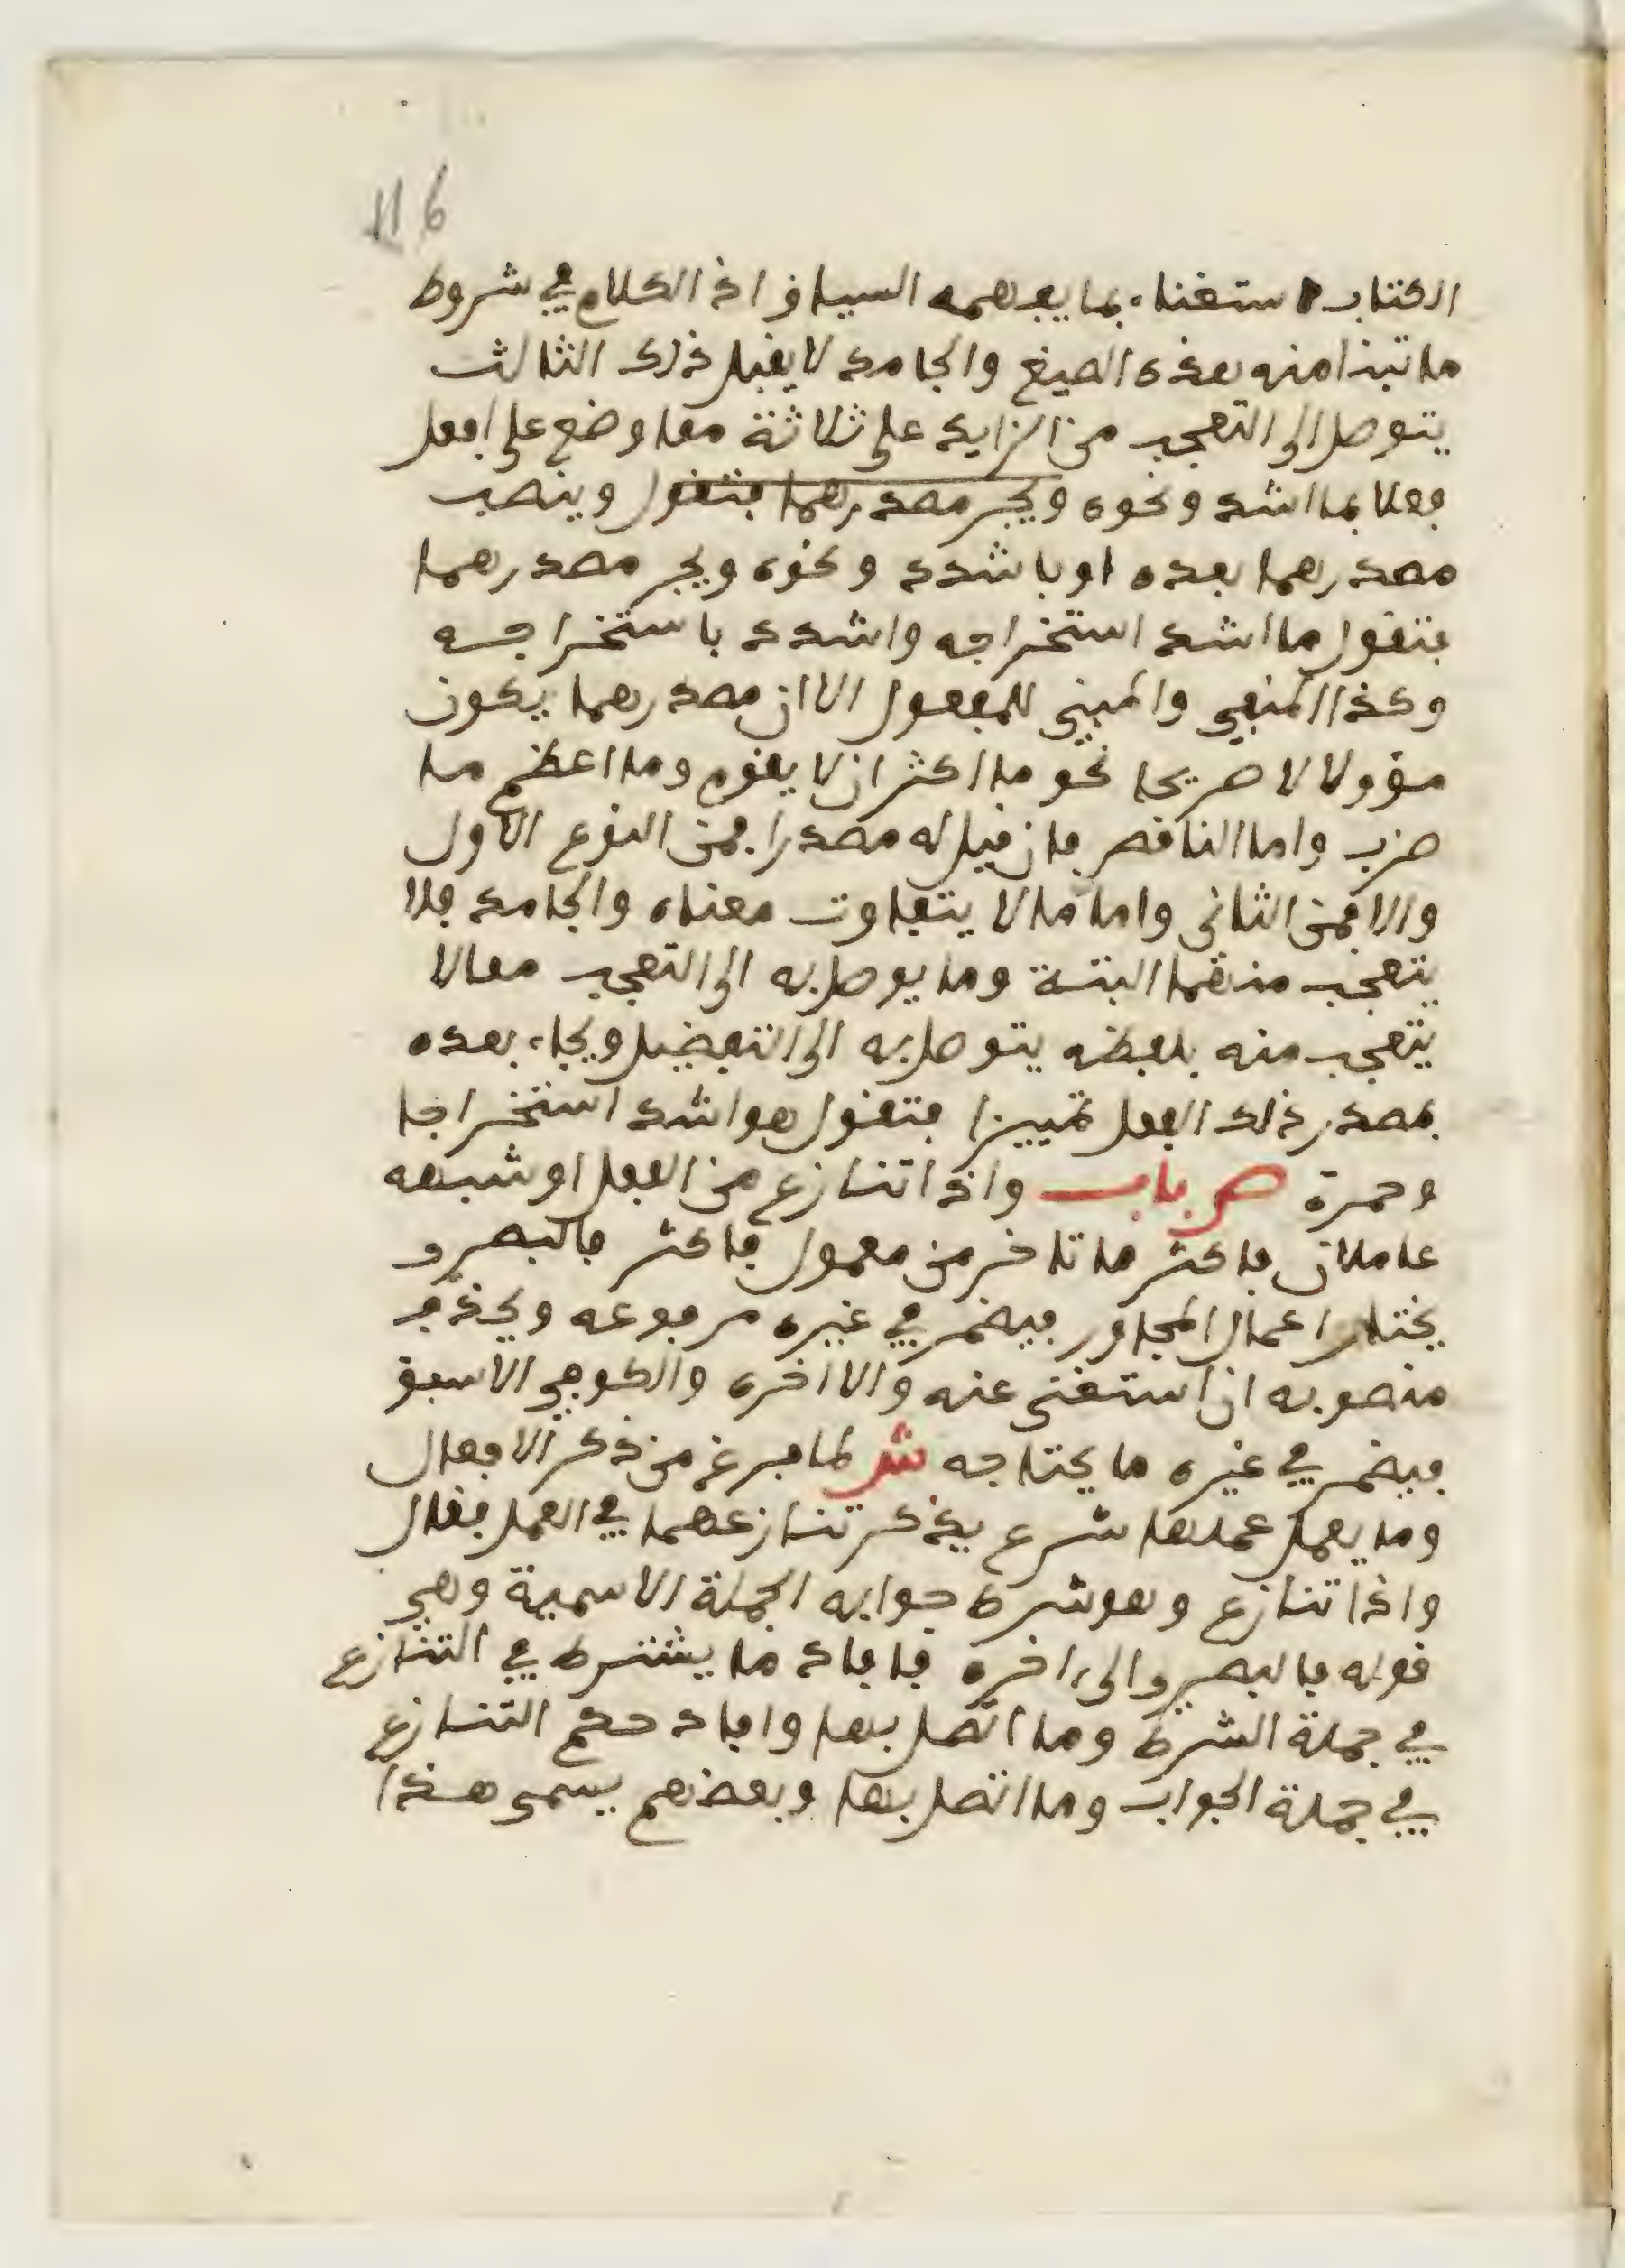 116
الكتاب استغناء بما يفهمه السياق اذ الكلام في شروط
ما تبنا منه هذه الصيغ والجامد لا يقبل ذلك الثالث
يتوصل الى التعجب من الزايد على ثلاثة مما وضع على افعل
فعلا بما اشد ونحوه ويجر مصدرهما فتقول وينصب
مصدرهما بعده او باشدد ونحوه ويجر مصدرهما
فتقول ما اشد استخراجه واشدد باستخراجه
وكذا المنفي والمبني للمفعول الا ان مصدرهما يكون
مؤولا لا صريحا نحو ما اكثر ان لا يقوم وما اعظم ما
ضرب واما الناقص فان قيل له مصدرا فمن النوع الاول
والا فمن الثاني واما ما لا يتفاوت معناه والجامد فلا
يتعجب منهما البتة وما يوصل به الى التعجب مما لا
يتعجب منه بلفظه يتوصل به الى التفضيل ويجاء بعده
بمصدر ذلك الفعل تمييزا فتقول هو اشد استخراجا
وحمرة ص باب واذا تنازع من الفعل او شبهه
عاملان فاكثر ما تاخر من معمول فاكثر فالبصرو
يختار اعمال المجاور فيضمر في غيره مرفوعه ويحذف
منصوبه ان استغنى عنه والا اخره والكوفي الاسبق
فيضمر في غيره ما يحتاجه ش لما فرغ من ذكر الافعال
وما يعمل عملها شرع يذكر تنازعهما في العمل فقال
واذا تنازع وهو شرط جوابه الجملة الاسمية وهي
قوله فالبصرو الى ءاخره فافاد ما يشترط في التنازع
في جملة الشرط وما اتصل بها وافاد حكم التنازع
في جملة الجواب وما اتصل بها وبعضهم يسمى هذا